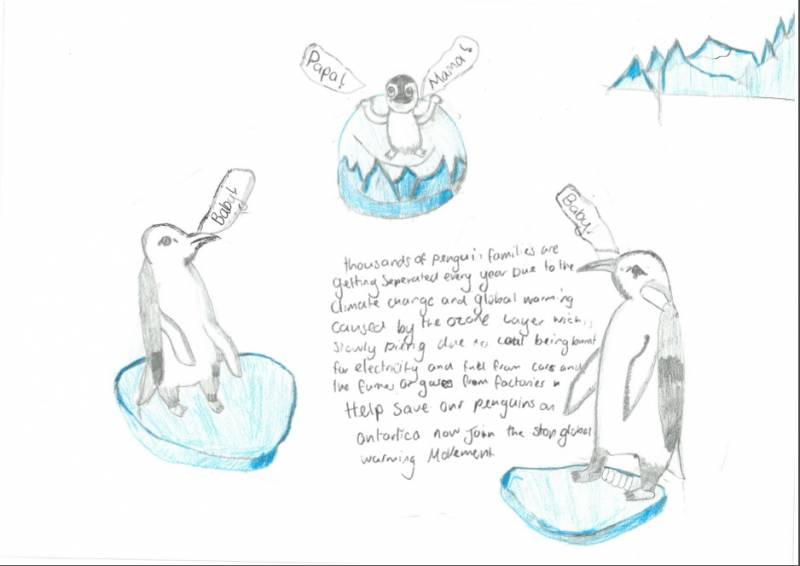 Papa!
Mama!
Baby!
Baby!
thousands of penguin families are
getting seperated every year Due to the
climate change and global warming
caused by the ozone Layer which is
slowly due to coal being burnt
for electricity and fuel from cars and
the fumes or gases from factories
Help save our penguins on
antartica now Join the stop global
warming Movement